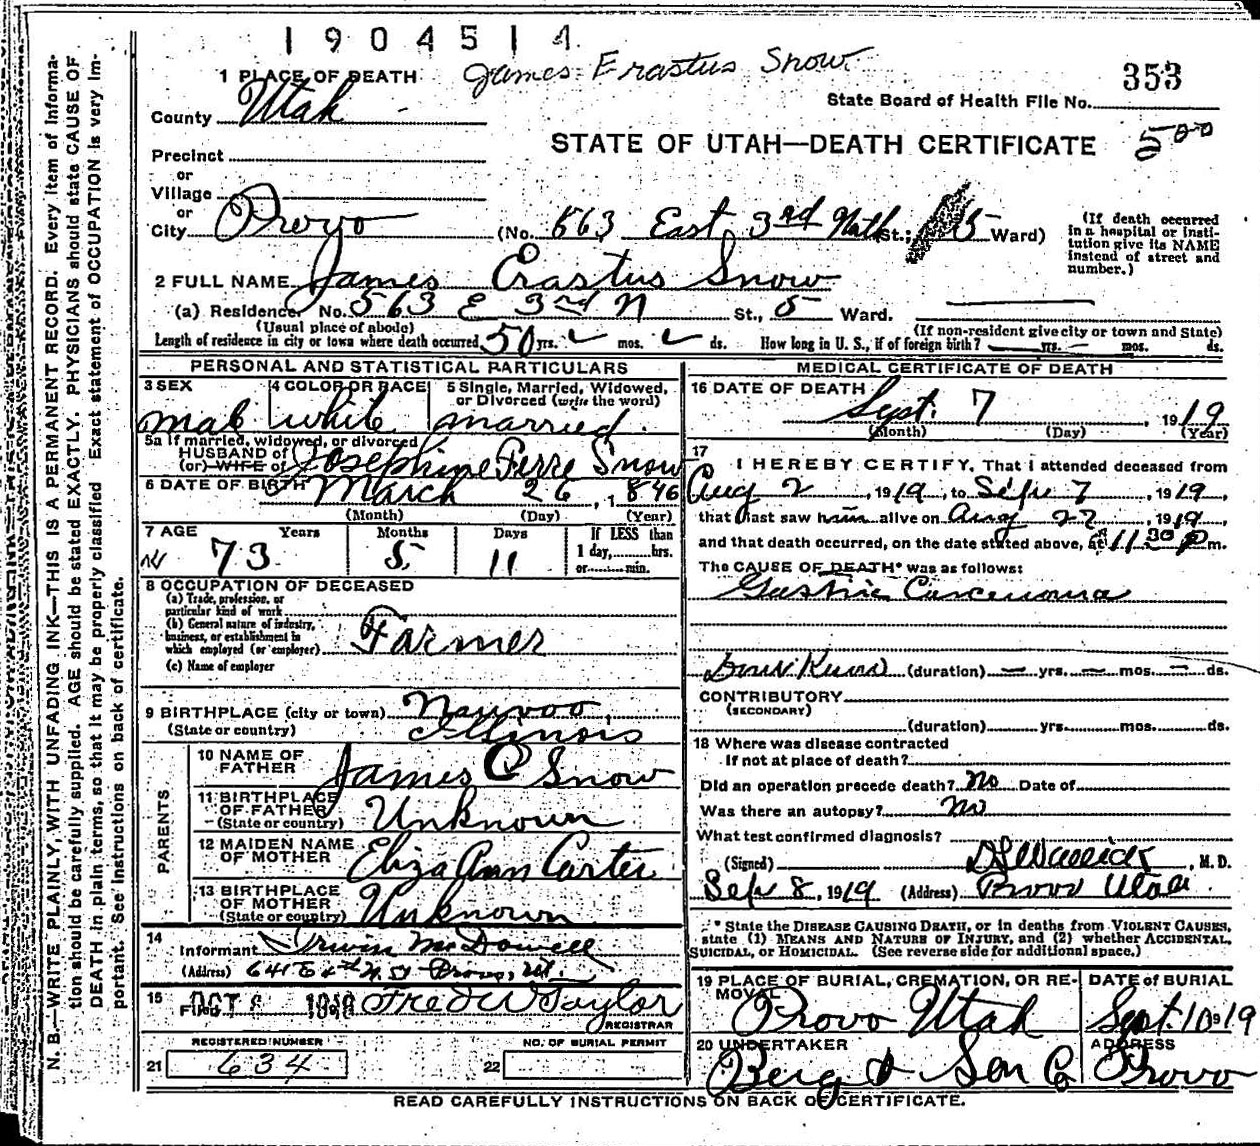 1904514
James Erastus Snow
353
1 PLACE OF DEATH
State Board of Health File No.
County Utah
STATE OF UTAH—DEATH CERTIFICATE
500
Precinct
or
Village
or
City Provo (No. 563 East 3rd North St.; 5 Ward)
(If death occurred in a hospital or institution give its NAME instead of street and number.)
2 FULL NAME James Erastus Snow
(a) Residence, No. 563 E 3rd N St., 5 Ward.
(Usual place of abode) (If non-resident give city or town and State)
Length of residence in city or town where death occurred 50 yrs. mos. ds. How long in U. S., if of foreign birth? yrs. mos. ds.
PERSONAL AND STATISTICAL PARTICULARS
3 SEX 4 COLOR OR RACE 5 Single, Married, Widowed, or Divorced (write the word)
male white married
5a If married, widowed, or divorced
HUSBAND of
(or) WIFE of Josephine Ferre Snow
6 DATE OF BIRTH March 26, 1846
(Month) (Day) (Year)
7 AGE Years Months Days If LESS than
1 day, hrs.
or min.
73 5 11
8 OCCUPATION OF DECEASED
(a) Trade, profession, or
particular kind of work
(b) General nature of industry,
business, or establishment in
which employed (or employer) Farmer
(c) Name of employer
9 BIRTHPLACE (city or town) Nauvoo,
(State or country) Illinois
PARENTS
10 NAME OF
FATHER James C Snow
11 BIRTHPLACE
OF FATHER
(State or country) Unknown
12 MAIDEN NAME
OF MOTHER Eliza Ann Carter
13 BIRTHPLACE
OF MOTHER
(State or country) Unknown
14
Informant Irwin McDowell
(Address) 641 E 4th N St Provo, Ut.
15
Filed OCT 1919 Fred W Taylor
REGISTRAR
REGISTERED NUMBER NO. OF BURIAL PERMIT
21 634 22
MEDICAL CERTIFICATE OF DEATH
16 DATE OF DEATH
Sept. 7, 1919
(Month) (Day) (Year)
17
I HEREBY CERTIFY, That I attended deceased from
Aug 2, 1919, to Sept 7, 1919,
that I last saw him alive on Aug 27, 1919,
and that death occurred, on the date stated above, at 11:30 p m.
The CAUSE OF DEATH* was as follows:
Gastric Carcenoma
(duration) — yrs. — mos. — ds.
CONTRIBUTORY
(SECONDARY)
(duration) yrs. mos. ds.
18 Where was disease contracted
If not at place of death?
Did an operation precede death? No Date of
Was there an autopsy? no
What test confirmed diagnosis?
(Signed) , M. D.
Sep 8, 1919 (Address) Provo Utah
* State the DISEASE CAUSING DEATH, or in deaths from VIOLENT CAUSES,
state (1) MEANS AND NATURE OF INJURY, and (2) whether ACCIDENTAL,
SUICIDAL, or HOMICIDAL. (See reverse side for additional space.)
19 PLACE OF BURIAL, CREMATION, OR RE-
MOVAL
Provo Utah
DATE OF BURIAL
Sept. 10 1919
20 UNDERTAKER
Berg & Son Co
ADDRESS
Provo
READ CAREFULLY INSTRUCTIONS ON BACK OF CERTIFICATE.
N. B.—WRITE PLAINLY, WITH UNFADING INK—THIS IS A PERMANENT RECORD. Every item of Informa-
tion should be carefully supplied. AGE should be stated EXACTLY. PHYSICIANS should state CAUSE OF
DEATH in plain terms, so that it may be properly classified. Exact statement of OCCUPATION is very im-
portant. See instructions on back of certificate.